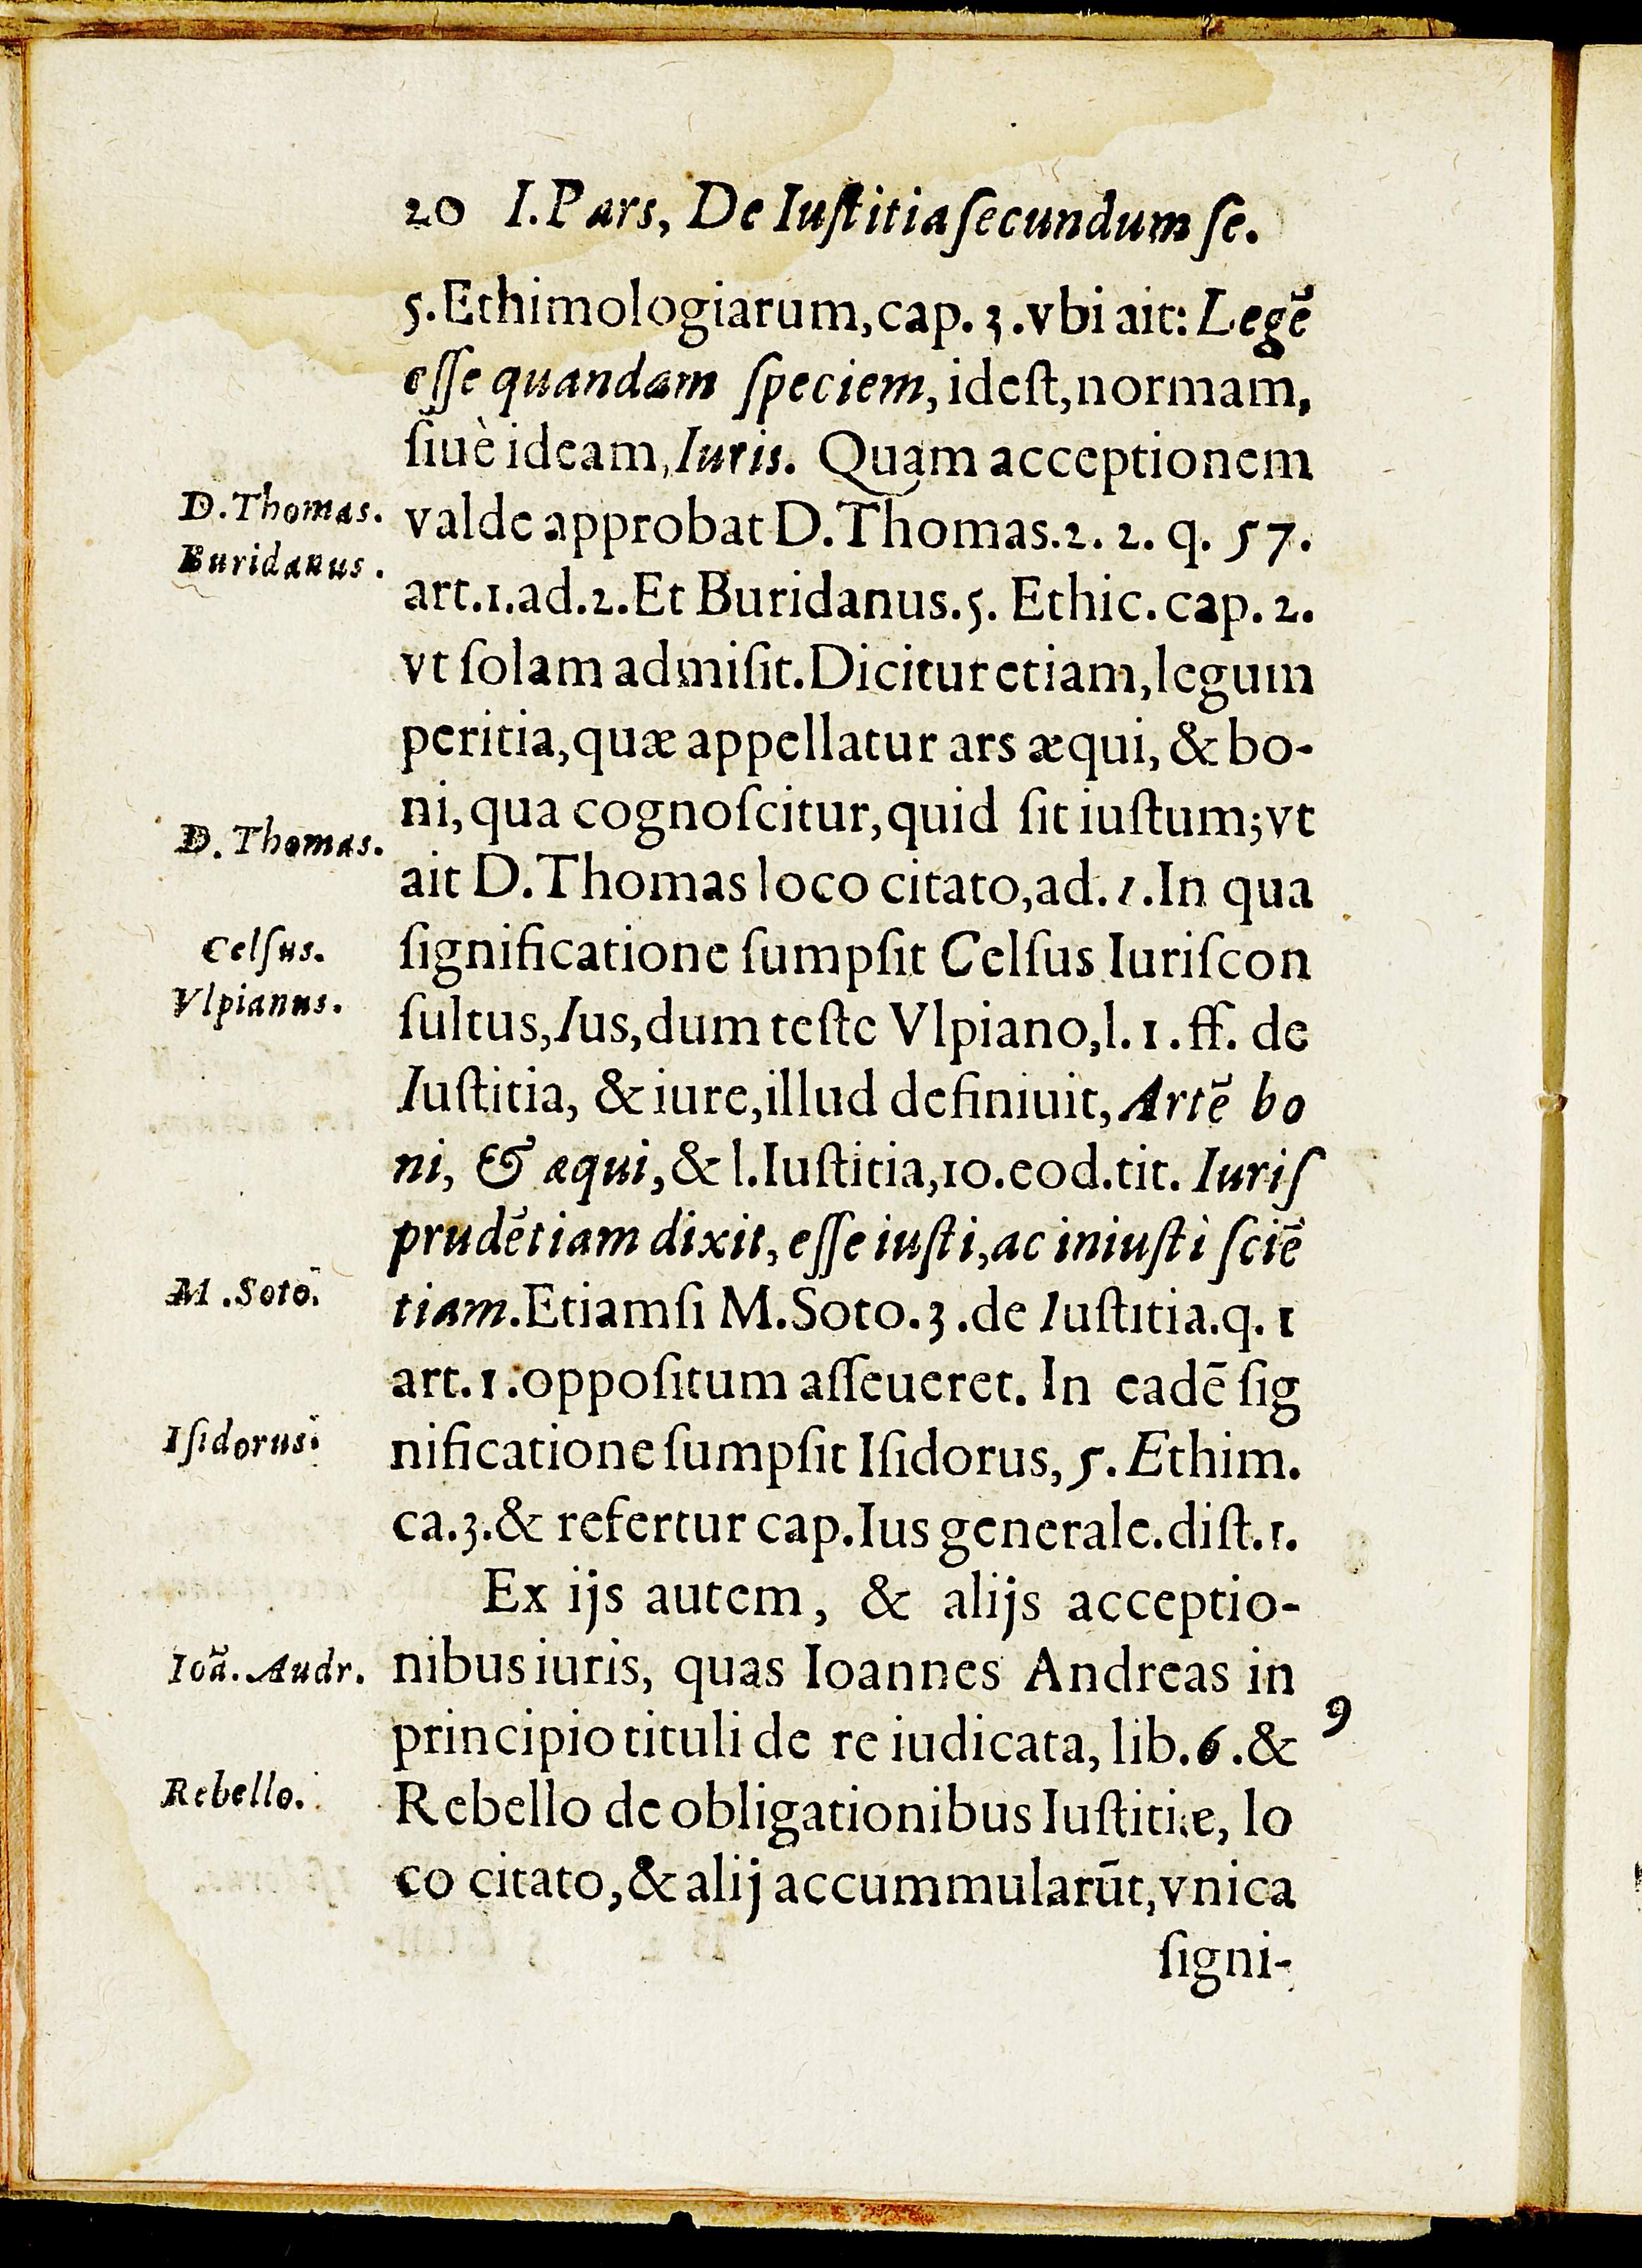 20 I. Pars, De Iuſtitia ſecundum ſe.
5. Ethimologiarum, cap. 3. vbi ait: Legē
eſſe quandam ſpeciem, ideſt, normam,
ſiuè ideam, Iuris. Quam acceptionem
D. Thomas.
valde approbat D. Thomas. 2. 2. q. 57.
Buridanus.
art. 1. ad. 2. Et Buridanus. 5. Ethic. cap. 2.
vt ſolam admiſit. Dicitur etiam, legum
peritia, quæ appellatur ars æqui, & bo-
ni, qua cognoſcitur, quid ſit iuſtum; vt
D. Thomas.
ait D. Thomas loco citato, ad. 1. In qua
Celſus.
ſignificatione ſumpſit Celſus Iuriſcon
Vlpianus.
ſultus, Ius, dum teſte Vlpiano, l. 1. ff. de
Iuſtitia, & iure, illud definiuit, Artē bo
ni, & æqui, & l. Iuſtitia, 10. eod. tit. Iuriſ
prudētiam dixit, eſſe iuſti, ac iniuſti ſciē
M. Soto.
tiam. Etiamſi M. Soto. 3. de Iuſtitia. q. 1
art. 1. oppoſitum aſſeueret. In eadē ſig
Iſidorus.
nificatione ſumpſit Iſidorus, 5. Ethim.
ca. 3. & refertur cap. Ius generale. diſt. 1.
Ex ijs autem, & alijs acceptio-
Ioā. Andr.
nibus iuris, quas Ioannes Andreas in
9
principio tituli de re iudicata, lib. 6. &
Rebello.
Rebello de obligationibus Iuſtitiæ, lo
co citato, & alij accummularūt, vnica
ſigni-